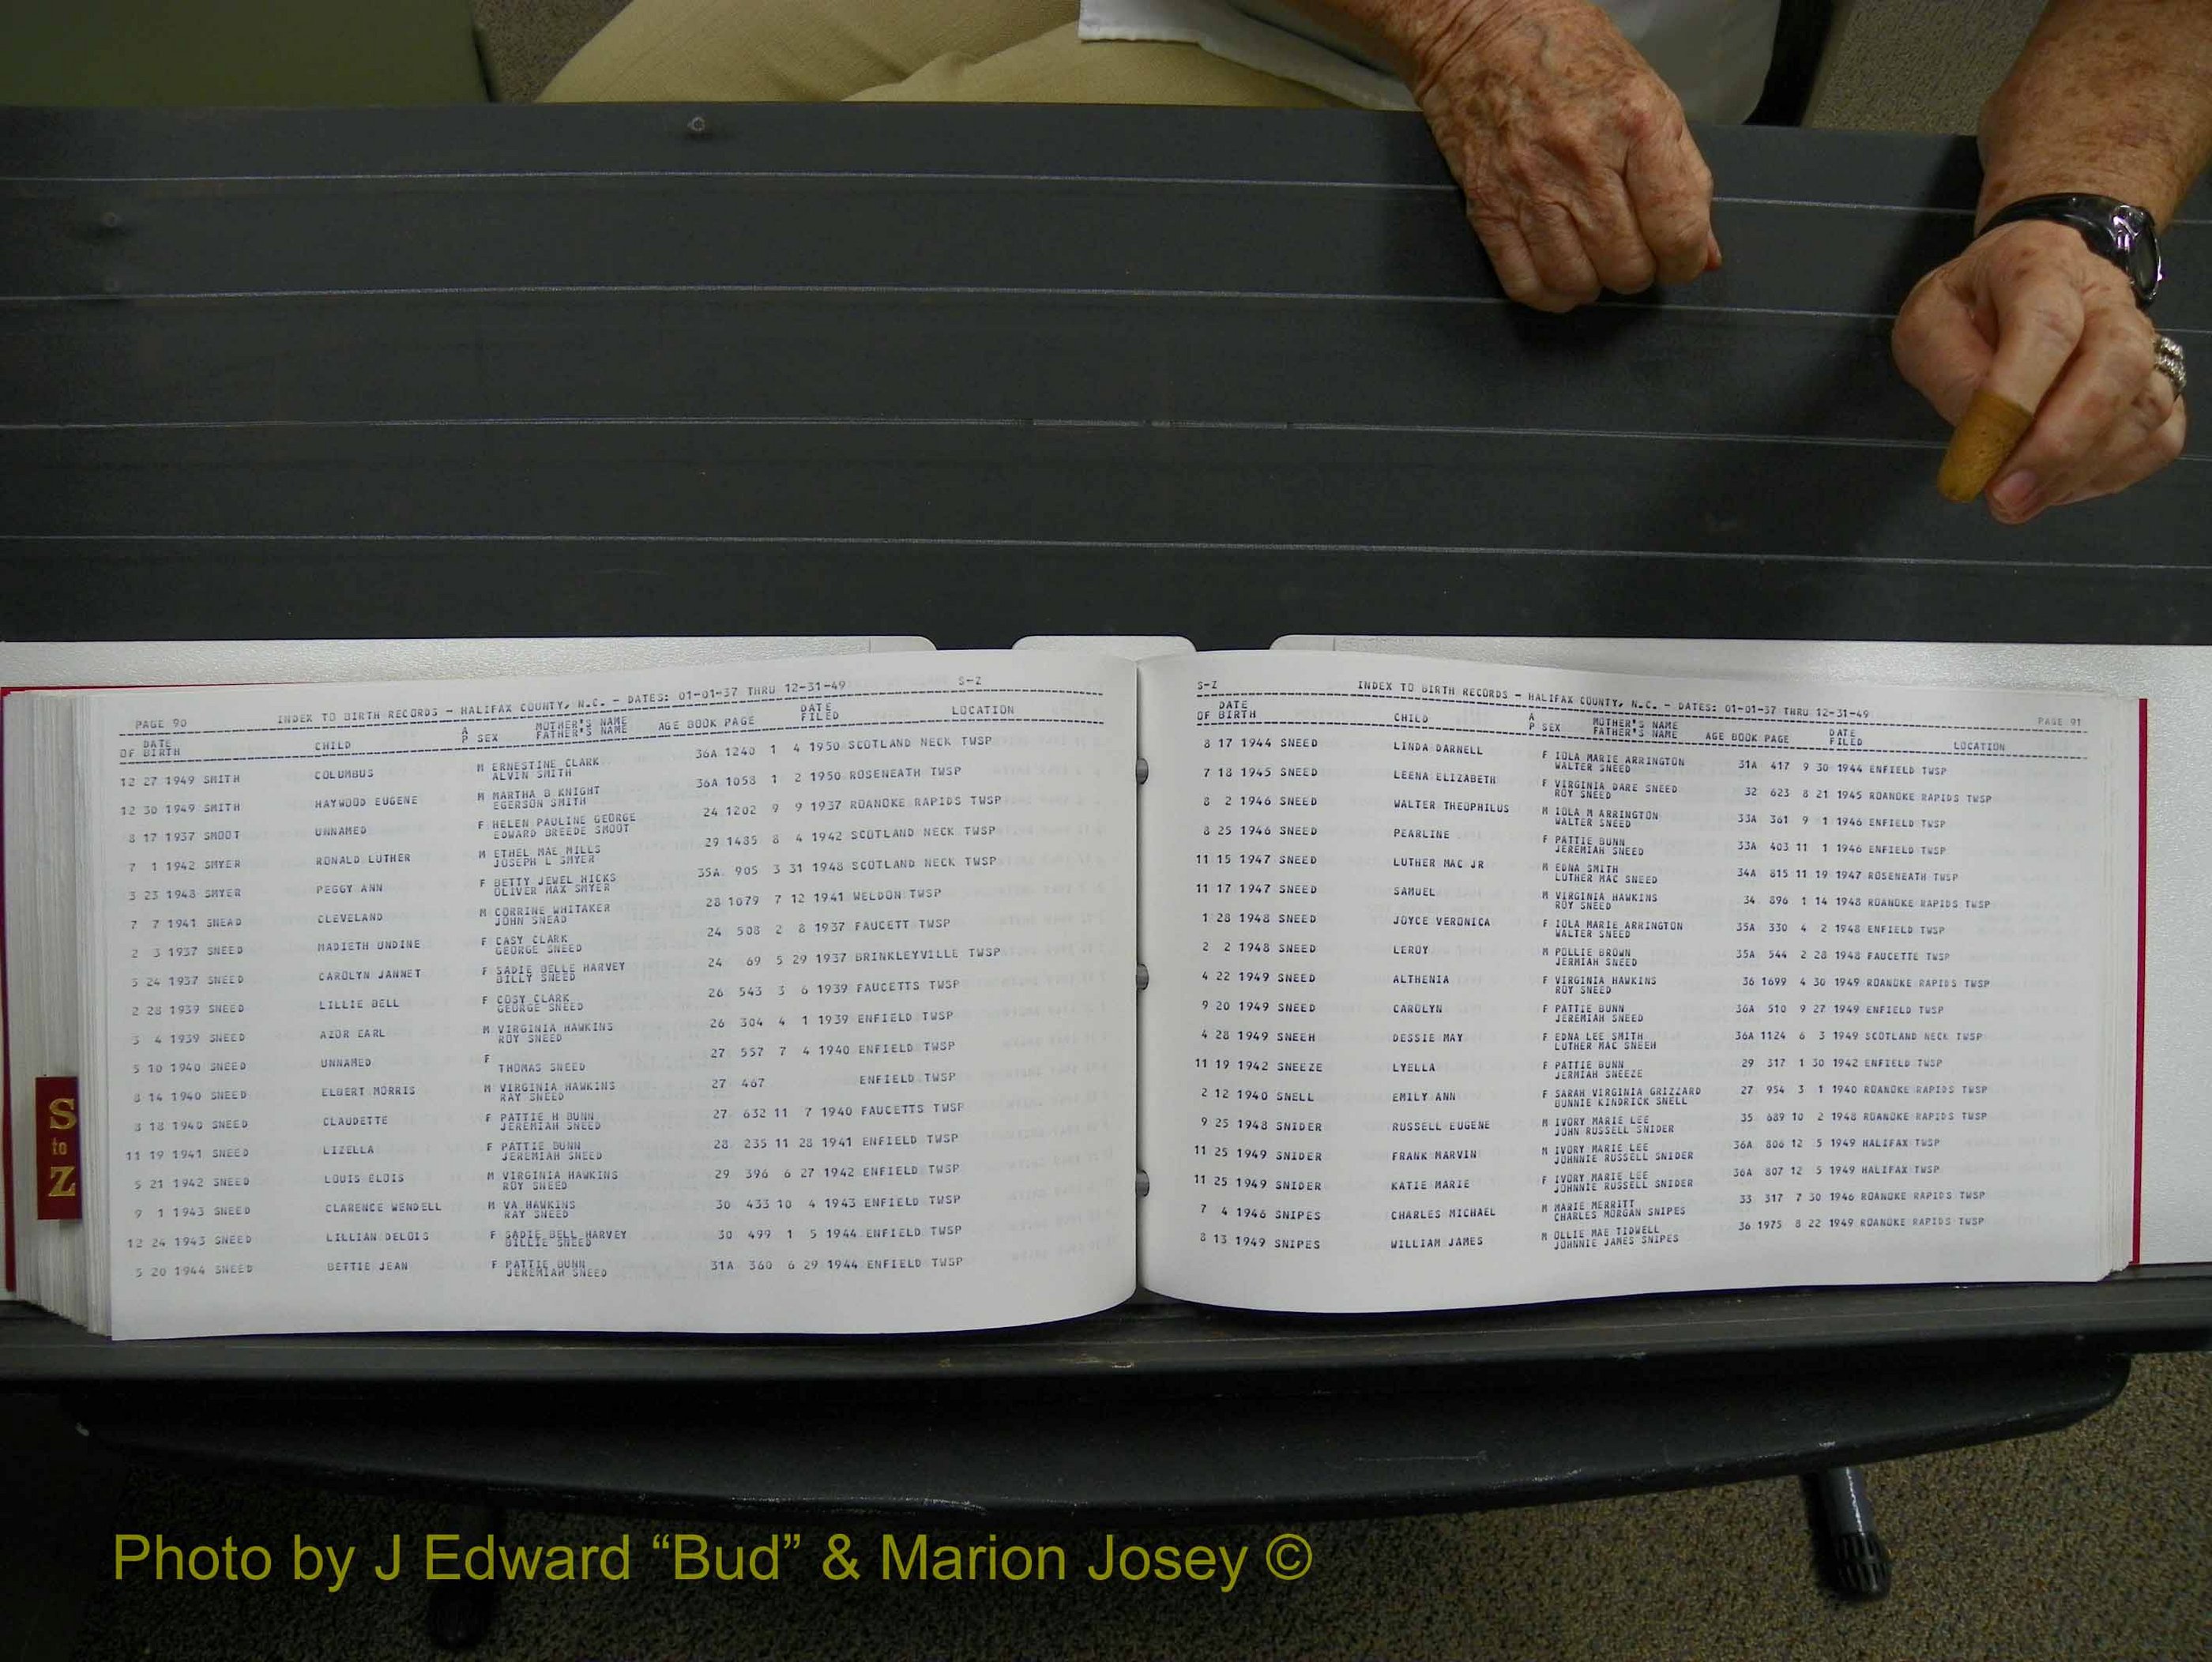 PAGE 90 INDEX TO BIRTH RECORDS - HALIFAX COUNTY, N.C. - DATES: 01-01-37 THRU 12-31-49 S-Z
DATE OF BIRTH CHILD A P SEX MOTHER'S NAME FATHER'S NAME AGE BOOK PAGE DATE FILED LOCATION
12 27 1949 SMITH COLUMBUS M ERNESTINE CLARK 36A 1240 1 4 1950 SCOTLAND NECK TWSP
ALVIN SMITH
12 30 1949 SMITH HAYWOOD EUGENE M MARTHA B KNIGHT 36A 1058 1 2 1950 ROSENEATH TWSP
EGERSON SMITH
8 17 1937 SMOOT UNNAMED F HELEN PAULINE GEORGE 24 1202 9 9 1937 ROANOKE RAPIDS TWSP
EDWARD BREEDE SMOOT
7 1 1942 SMYER RONALD LUTHER M ETHEL MAE MILLS 29 1485 8 4 1942 SCOTLAND NECK TWSP
JOSEPH L SMYER
3 23 1948 SMYER PEGGY ANN F BETTY JEWEL HICKS 35A 905 3 31 1948 SCOTLAND NECK TWSP
OLIVER MAX SMYER
7 7 1941 SNEAD CLEVELAND M CORRINE WHITAKER 28 1079 7 12 1941 WELDON TWSP
JOHN SNEAD
2 3 1937 SNEED MADIETH UNDINE F CASY CLARK 24 508 2 8 1937 FAUCETT TWSP
GEORGE SNEED
5 24 1937 SNEED CAROLYN JANNET F SADIE BELLE HARVEY 24 69 5 29 1937 BRINKLEYVILLE TWSP
BILLY SNEED
2 28 1939 SNEED LILLIE BELL F COSY CLARK 26 543 3 6 1939 FAUCETTS TWSP
GEORGE SNEED
3 4 1939 SNEED AZOR EARL M VIRGINIA HAWKINS 26 304 4 1 1939 ENFIELD TWSP
ROY SNEED
5 10 1940 SNEED UNNAMED F 27 557 7 4 1940 ENFIELD TWSP
THOMAS SNEED
8 14 1940 SNEED ELBERT MORRIS M VIRGINIA HAWKINS 27 467 ENFIELD TWSP
RAY SNEED
8 18 1940 SNEED CLAUDETTE F PATTIE H BUNN 27 632 11 7 1940 FAUCETTS TWSP
JEREMIAH SNEED
11 19 1941 SNEED LIZELLA F PATTIE BUNN 28 235 11 28 1941 ENFIELD TWSP
JEREMIAH SNEED
5 21 1942 SNEED LOUIS ELOIS M VIRGINIA HAWKINS 29 396 6 27 1942 ENFIELD TWSP
ROY SNEED
9 1 1943 SNEED CLARENCE WENDELL M VA HAWKINS 30 433 10 4 1943 ENFIELD TWSP
RAY SNEED
12 24 1943 SNEED LILLIAN DELOIS F SADIE BELL HARVEY 30 499 1 5 1944 ENFIELD TWSP
BILLIE SNEED
5 20 1944 SNEED BETTIE JEAN F PATTIE BUNN 31A 360 6 29 1944 ENFIELD TWSP
JEREMIAH SNEED
S to Z
S-Z INDEX TO BIRTH RECORDS - HALIFAX COUNTY, N.C. - DATES: 01-01-37 THRU 12-31-49 PAGE 91
DATE OF BIRTH CHILD A P SEX MOTHER'S NAME FATHER'S NAME AGE BOOK PAGE DATE FILED LOCATION
8 17 1944 SNEED LINDA DARNELL F IOLA MARIE ARRINGTON 31A 417 9 30 1944 ENFIELD TWSP
WALTER SNEED
7 18 1945 SNEED LEENA ELIZABETH F VIRGINIA DARE SNEED 32 623 8 21 1945 ROANOKE RAPIDS TWSP
ROY SNEED
8 2 1946 SNEED WALTER THEOPHILUS M IOLA M ARRINGTON 33A 361 9 1 1946 ENFIELD TWSP
WALTER SNEED
8 25 1946 SNEED PEARLINE F PATTIE BUNN 33A 403 11 1 1946 ENFIELD TWSP
JEREMIAH SNEED
11 15 1947 SNEED LUTHER MAC JR M EDNA SMITH 34A 815 11 19 1947 ROSENEATH TWSP
LUTHER MAC SNEED
11 17 1947 SNEED SAMUEL M VIRGINIA HAWKINS 34 896 1 14 1948 ROANOKE RAPIDS TWSP
ROY SNEED
1 28 1948 SNEED JOYCE VERONICA F IOLA MARIE ARRINGTON 35A 330 4 2 1948 ENFIELD TWSP
WALTER SNEED
2 2 1948 SNEED LEROY M POLLIE BROWN 35A 544 2 28 1948 FAUCETTE TWSP
JERMIAH SNEED
4 22 1949 SNEED ALTHENIA F VIRGINIA HAWKINS 36 1699 4 30 1949 ROANOKE RAPIDS TWSP
ROY SNEED
9 20 1949 SNEED CAROLYN F PATTIE BUNN 36A 510 9 27 1949 ENFIELD TWSP
JEREMIAH SNEED
4 28 1949 SNEEH DESSIE MAY F EDNA LEE SMITH 36A 1124 6 3 1949 SCOTLAND NECK TWSP
LUTHER MAC SNEEH
11 19 1942 SNEEZE LYELLA F PATTIE BUNN 29 317 1 30 1942 ENFIELD TWSP
JERMIAH SNEEZE
2 12 1940 SNELL EMILY ANN F SARAH VIRGINIA GRIZZARD 27 954 3 1 1940 ROANOKE RAPIDS TWSP
BUNNIE KINDRICK SNELL
9 25 1948 SNIDER RUSSELL EUGENE M IVORY MARIE LEE 35 689 10 2 1948 ROANOKE RAPIDS TWSP
JOHN RUSSELL SNIDER
11 25 1949 SNIDER FRANK MARVIN M IVORY MARIE LEE 36A 806 12 5 1949 HALIFAX TWSP
JOHNNIE RUSSELL SNIDER
11 25 1949 SNIDER KATIE MARIE F IVORY MARIE LEE 36A 807 12 5 1949 HALIFAX TWSP
JOHNNIE RUSSELL SNIDER
7 4 1946 SNIPES CHARLES MICHAEL M MARIE MERRITT 33 317 7 30 1946 ROANOKE RAPIDS TWSP
CHARLES MORGAN SNIPES
8 13 1949 SNIPES WILLIAM JAMES M OLLIE MAE TIDWELL 36 1975 8 22 1949 ROANOKE RAPIDS TWSP
JOHNNIE JAMES SNIPES
Photo by J Edward “Bud” & Marion Josey ©